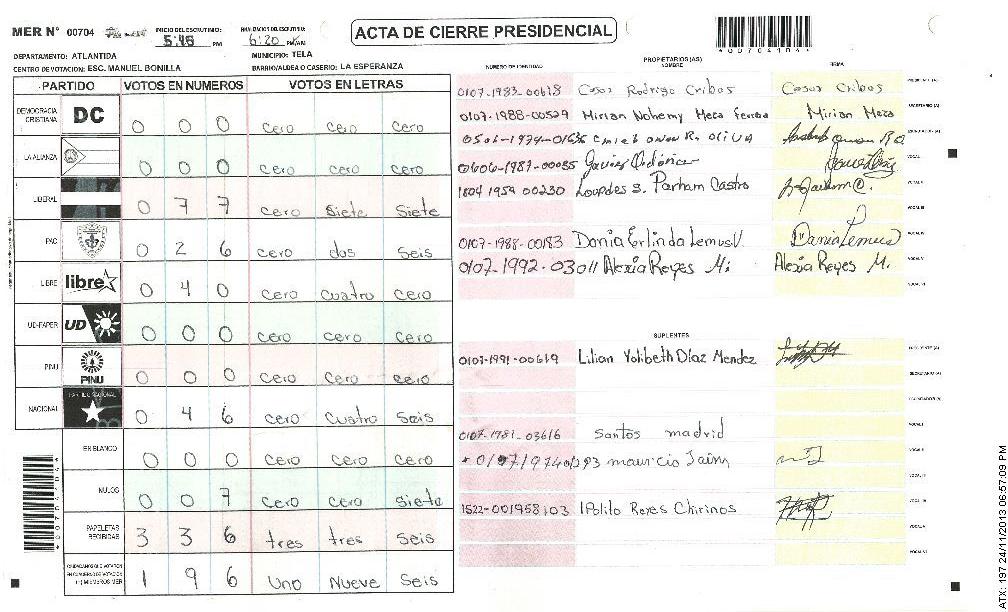 MER N° 00704 INICIO DEL ESCRUTINIO: 5:48 PM FINALIZACION DEL ESCRUTINIO: 6:20 PM/AM ACTA DE CIERRE PRESIDENCIAL
*00704104*
DEPARTAMENTO: ATLANTIDA MUNICIPIO: TELA
CENTRO DE VOTACION: ESC. MANUEL BONILLA BARRIO/ALDEA O CASERIO: LA ESPERANZA
PARTIDO VOTOS EN NUMEROS VOTOS EN LETRAS
DEMOCRACIA CRISTIANA DC 0 0 0 cero cero cero
LA ALIANZA 0 0 0 cero cero cero
LIBERAL 0 7 7 cero Siete Siete
PAC 0 2 6 cero dos Seis
LIBRE libre 0 4 0 cero cuatro cero
UD-FAPER UD 0 0 0 cero cero cero
PINU PINU 0 0 0 cero cero cero
NACIONAL PARTIDO NACIONAL 0 4 6 cero cuatro Seis
EN BLANCO 0 0 0 cero cero cero
NULOS 0 0 7 cero cero siete
PAPELETAS RECIBIDAS 3 3 6 tres tres seis
CIUDADANOS QUE VOTARON EN CUADERNO DE VOTACION (+) MIEMBROS MER 1 9 6 Uno Nueve Seis
*00704104*
NUMERO DE IDENTIDAD PROPIETARIOS (AS) NOMBRE FIRMA
0107-1983-00618 Cesar Rodrigo Cribas Cesar Cribas PRESIDENTE (A)
0107-1988-00529 Mirian Nohemy Meza Mirian Meza SECRETARIO (A)
0506-1974-01636 ESCRUTADOR (A)
0606-1987-00085 Javier Ordoñez VOCAL I
1804 1954 00230 Lourdes S. Parham Castro VOCAL II
VOCAL III
0107-1988-00183 Dania Erlinda Lemus V. Dania Lemus VOCAL IV
0107-1992-03011 Alexia Reyes M. Alexia Reyes M. VOCAL V
VOCAL VI
SUPLENTES
0107-1991-00619 Lilian Yolibeth Díaz Mendez PRESIDENTE (A)
SECRETARIO (A)
ESCRUTADOR (A)
0107-1981-03616 Santos madrid VOCAL I
mauricio VOCAL II
VOCAL III
1522-001958103 IPolito Reyes Chirinos VOCAL IV
VOCAL V
VOCAL VI
ATX: 197 24/11/2013 06:57:09 PM